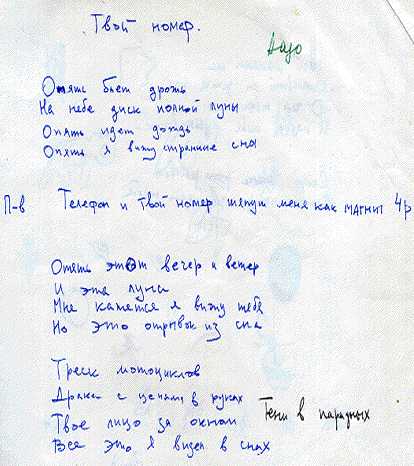 Твой номер.
Опять бьет дрожь
На небе диск полной луны
Опять идет дождь
Опять я вижу странные сны
П-в Телефон и твой номер тянут меня как магнит 4р
Опять этот вечер и ветер
И эта луна
Мне кажется я вижу тебя
Но это отрывок из сна
Треск мотоциклов
Драка с цепями в руках
Тени в парадных
Твое лицо за окном
Все это я видел в снах